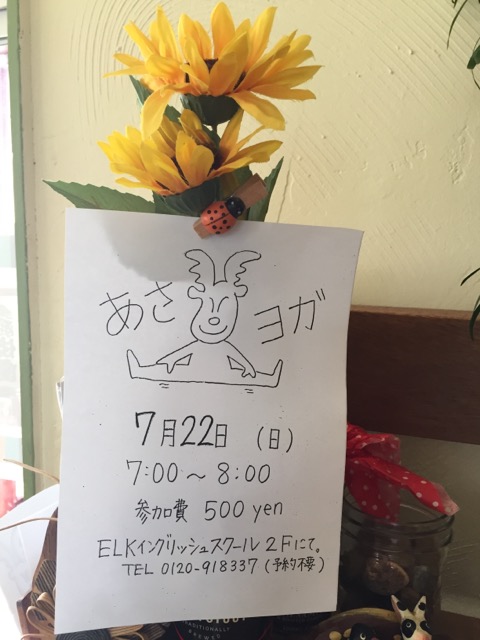 あさ ヨガ
7月22日 (日)
7:00～8:00
参加費 500 yen
ELKイングリッシュスクール 2Fにて。
TEL 0120-918337 (予約不要)
TRADITIONALLY